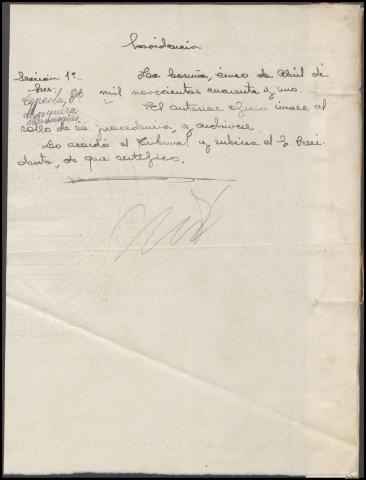 Providencia
Sección 1ª. La Coruña, cinco de Abril de
Sres. mil novecientos cuarenta y uno.
El anterior oficio únase al
rollo de su procedencia, y archívese.
Lo acordó el Tribunal y rubrica el Sr. Presi-
dente, de que certifico.